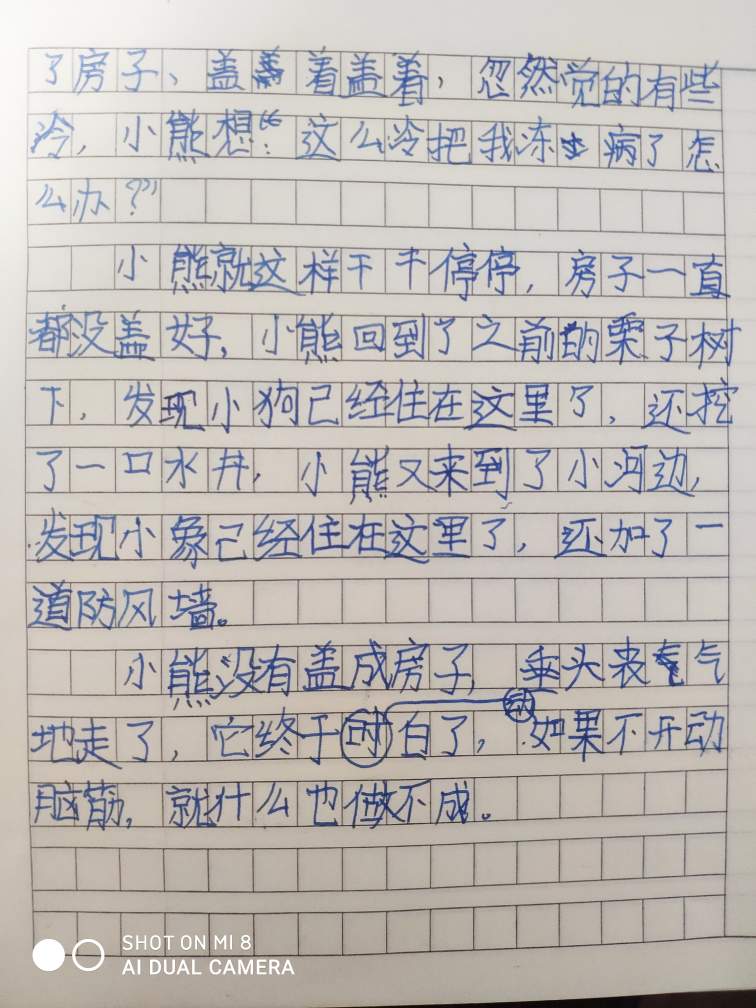 了房子、盖着着盖着，忽然觉的有些
冷，小熊想：“这么冷把我冻病了怎
么办？”
小熊就这样干干停停，房子一直
都没盖好，小熊回到了之前的栗子树
下，发现小狗己经住在这里了，还挖
了一口水井，小熊又来到了小河边，
发现小象己经住在这里了，还加了一
道防风墙。
小熊没有盖成房子，垂头丧气
地走了，它终于明白了，如果不开动
脑筋，就什么也做不成。
SHOT ON MI 8
AI DUAL CAMERA